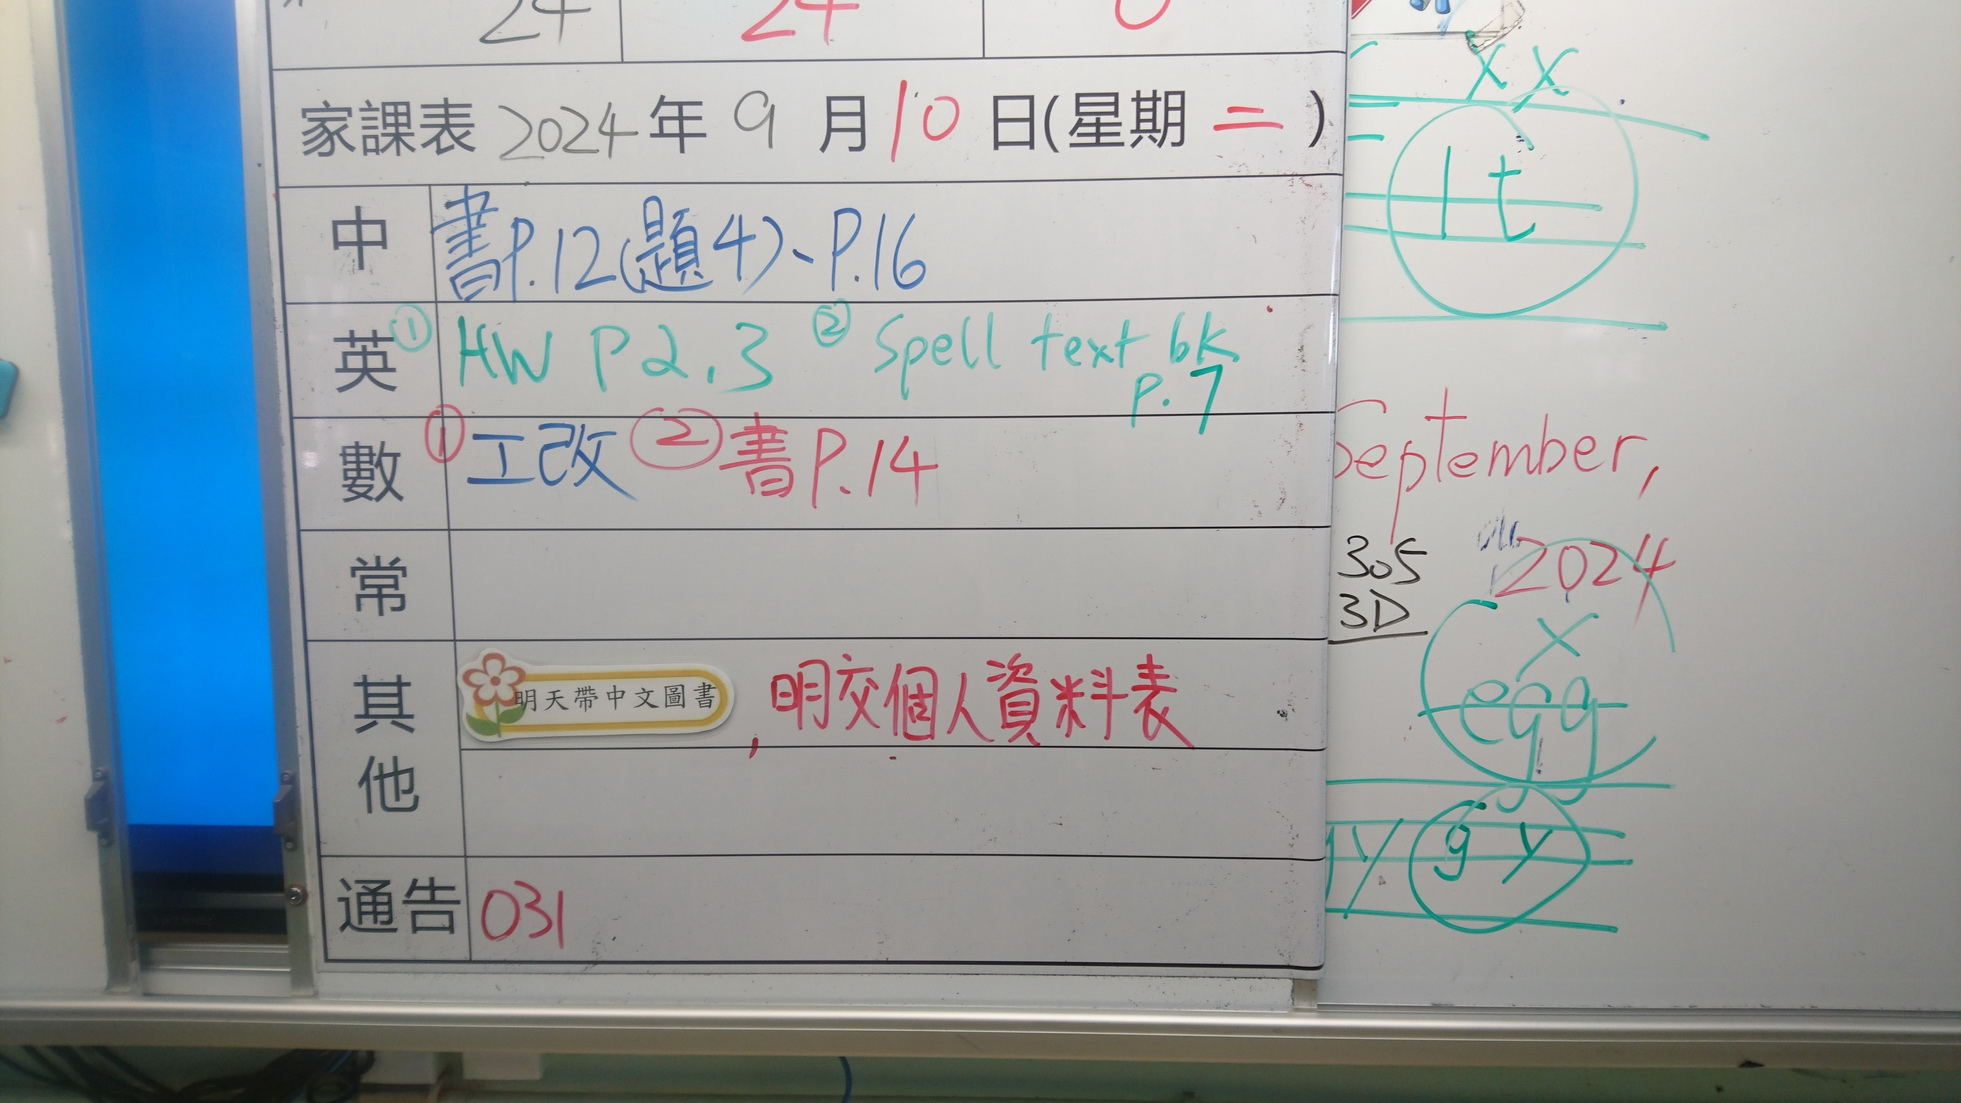 24 24 0
家課表 2024 年 9 月 10 日(星期 二 )
中 書P.12(題4)、P.16
英 ① HW P 2,3 ② Spell text bk
P.7
數 ① 工改 ② 書P.14
常
其他 明天帶中文圖書 , 明交個人資料表
通告 031
x x
l t
September,
2024
305
3D
x
egg
gy